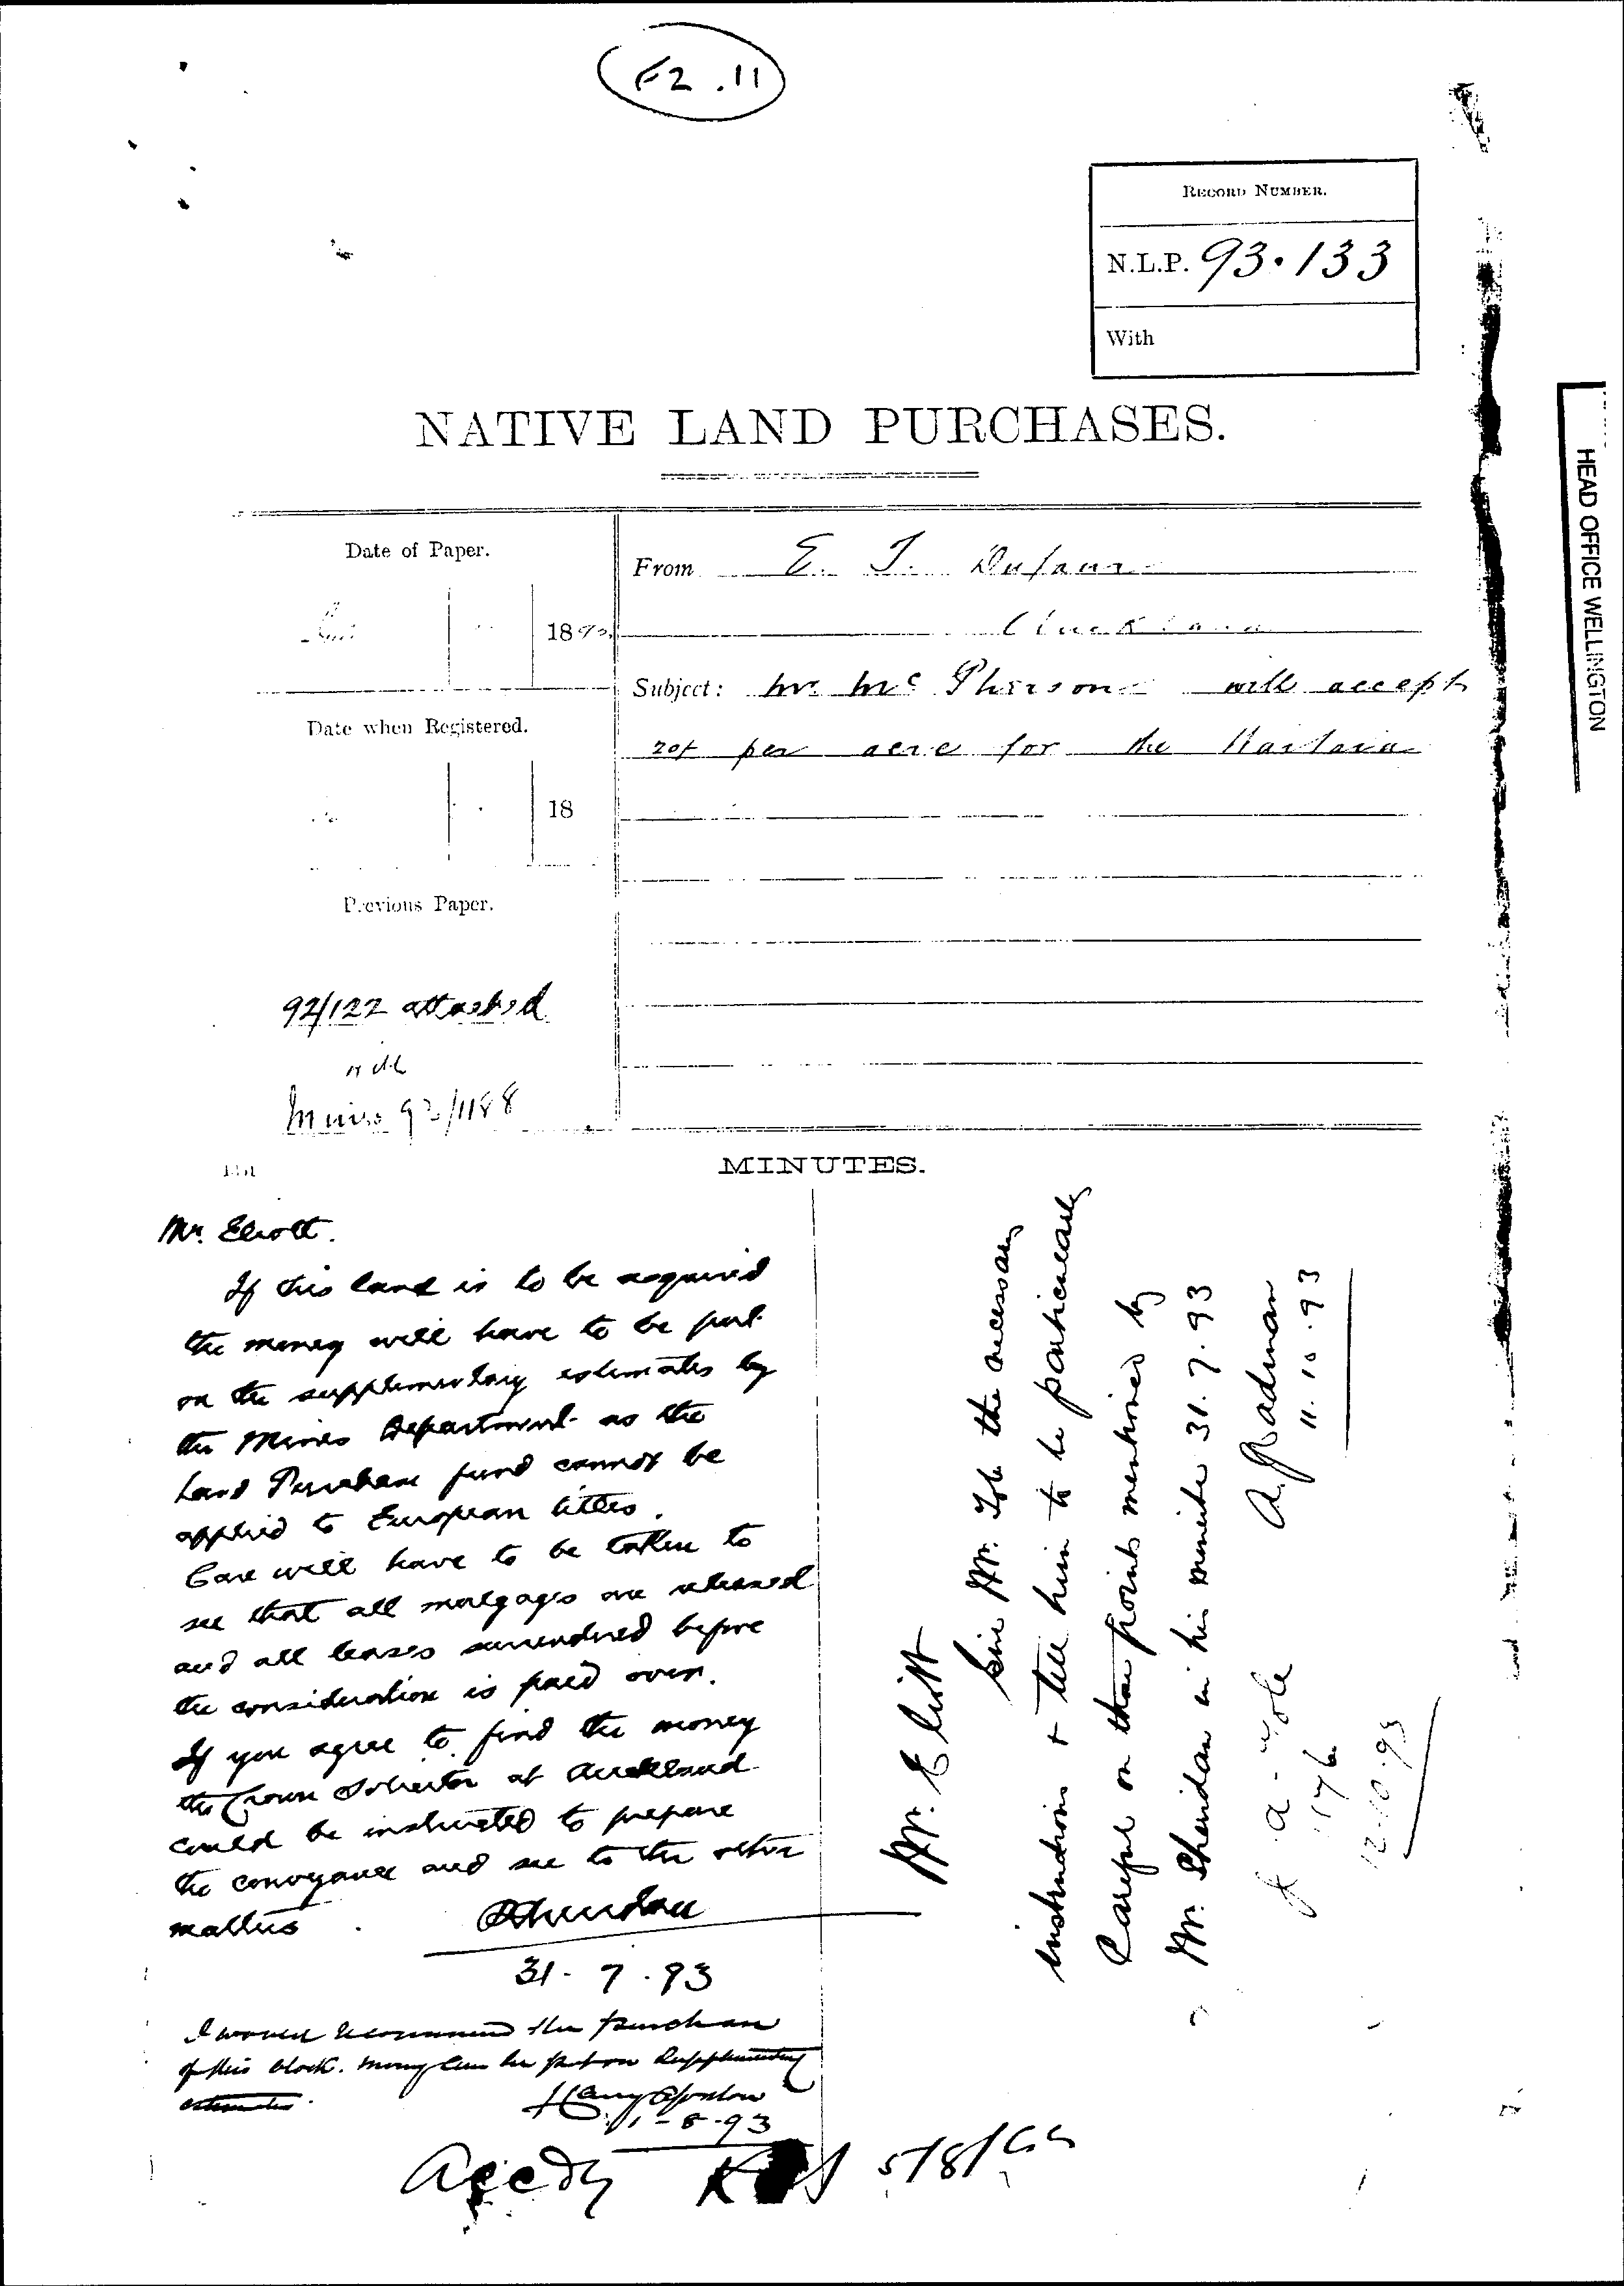 F2.11
RECORD NUMBER.
N.L.P. 93.133
With
HEAD OFFICE WELLINGTON
NATIVE LAND PURCHASES.
Date of Paper.
1893
From E. T. Dufaur
Auckland
Subject: Mr McPherson will accept
20/- per acre for the
Date when Registered.
18
Previous Paper.
92/122 attached
Mines 92/1188
MINUTES.
Mr. Eliott.
If this land is to be acquired
the money will have to be put
on the supplementary estimates by
the Mines Department as the
Land Purchase fund cannot be
applied to European titles.
Care will have to be taken to
see that all mortgages are released
and all leases surrendered before
the consideration is paid over.
If you agree to find the money
the Crown Solicitor at Auckland
could be instructed to prepare
the conveyance and see to the other
matters.
Sheridan
31-7.93
I would recommend the purchase
of this block. Money can be put on Supplementary
estimates.
Harry A Gordon
1-8-93
5/8/93
Mr. Eliott
Give Mr. Tole the necessary
instructions & tell him to be particularly
Careful on the points mentioned by
Mr. Sheridan in his minute 31.7.93
A.J. Cadman
11.10.93
J. A. Tole
12.10.93